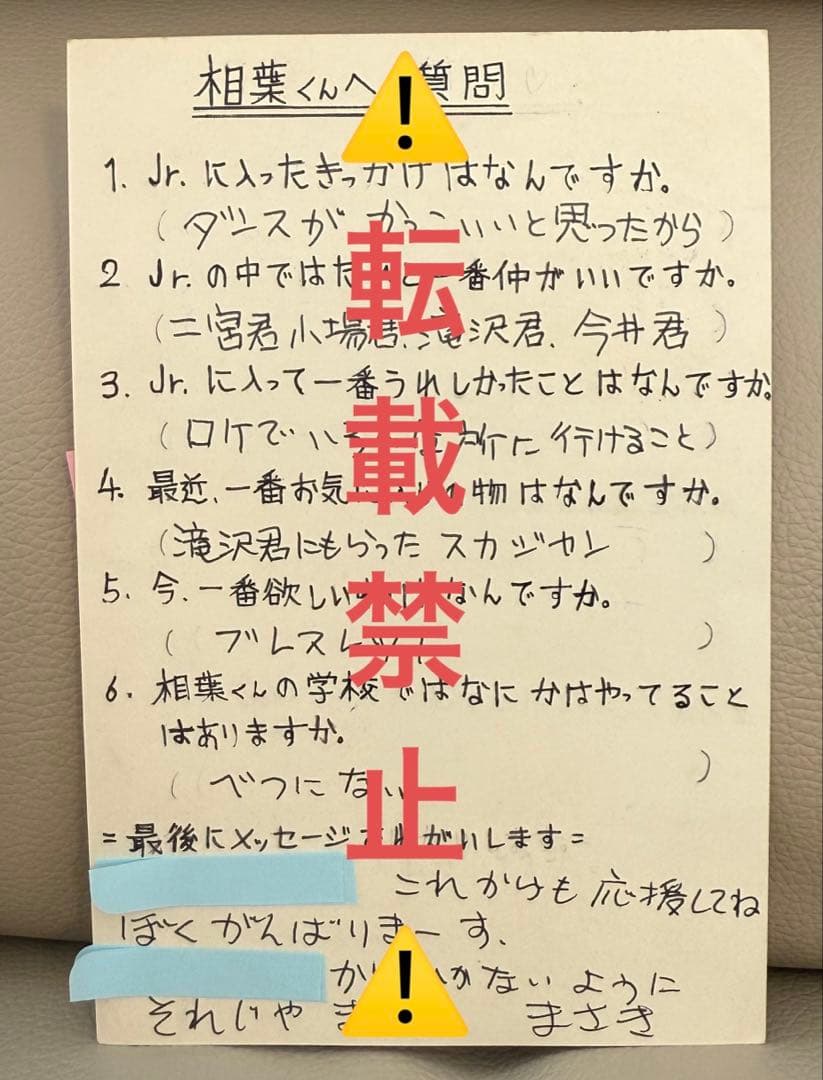 相葉くんへ 質問
1. Jr.に入ったきっかけはなんですか。
(ダンスがかっこいいと思ったから)
2 Jr.の中では 一番仲がいいですか。
(二宮君 小場君、滝沢君、今井君)
3. Jr.に入って一番うれしかったことはなんですか。
(ロケで 所に行けること)
4. 最近、一番お気に 物はなんですか。
(滝沢君にもらった スカジャン)
5. 今、一番欲しい なんですか。
(ブレスレット)
6. 相葉くんの学校ではなにかはやってること
はありますか。
(べつにない)
=最後にメッセージ します=
これからも応援してね
ぼくがんばりまーす、
ないように
それじゃ まさき
転載禁止